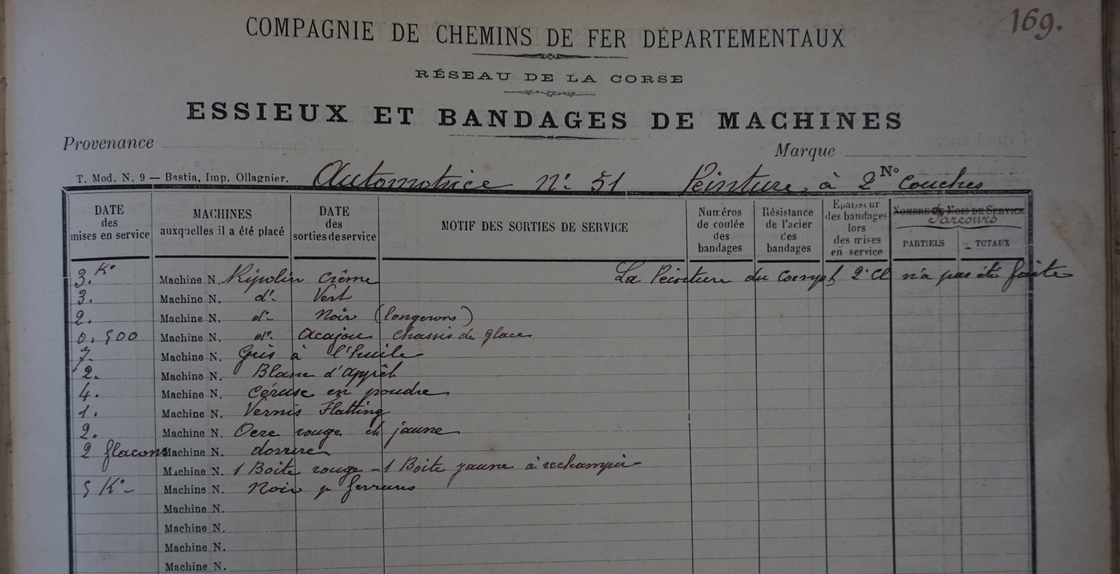 169.
COMPAGNIE DE CHEMINS DE FER DÉPARTEMENTAUX
RÉSEAU DE LA CORSE
ESSIEUX ET BANDAGES DE MACHINES
Provenance
Marque
T. Mod. N. 9 — Bastia, Imp. Ollagnier.
Automotrice N° 51 Peinture à 2 couches
N°
DATE des mises en service
MACHINES auxquelles il a été placé
DATE des sorties de service
MOTIF DES SORTIES DE SERVICE
Numéros de coulée des bandages
Résistance de l'acier des bandages
Epaisseur des bandages lors des mises en service
NOMBRE DE MOIS DE SERVICE
Parcours
PARTIELS
TOTAUX
3. K° Machine N. Ripolin Crême La Peinture du compt 2° Cl n'a pas été faite
3. Machine N. d° Vert
2. Machine N. d° Noir (longerons)
0.500 Machine N. d° Acajou chassis de glace
7. Machine N. Gris à l'huile
2. Machine N. Blanc d'apprêt
4. Machine N. Céruse en poudre
1. Machine N. Vernis Flatting
2. Machine N. Ocre rouge et jaune
2 flacons Machine N. dorure
Machine N. 1 Boite rouge - 1 Boite jaune à rechampir
5 K° Machine N. Noir p ferrures
Machine N.
Machine N.
Machine N.
Machine N.